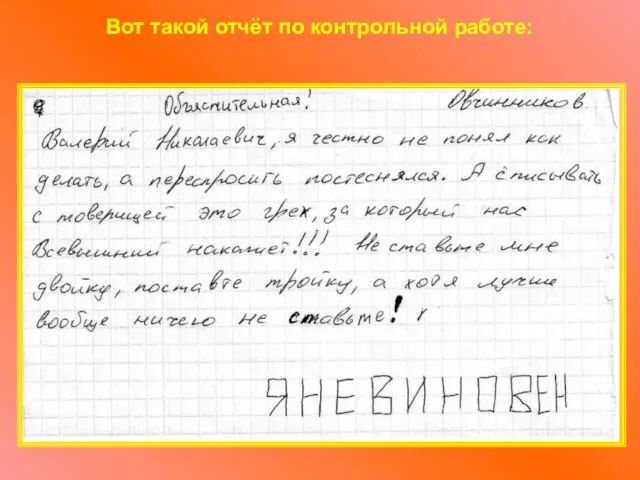 Вот такой отчёт по контрольной работе:
Объяснительная! Овчинников
Валерий Николаевич, я честно не понял как
делать, а переспросить постеснялся. А списывать
с товерищей это грех, за который нас
Всевышний накажет!!! Не ставьте мне
двойку, поставте тройку, а хотя лучше
вообще ничего не ставьте!
Я НЕ ВИНОВЕН